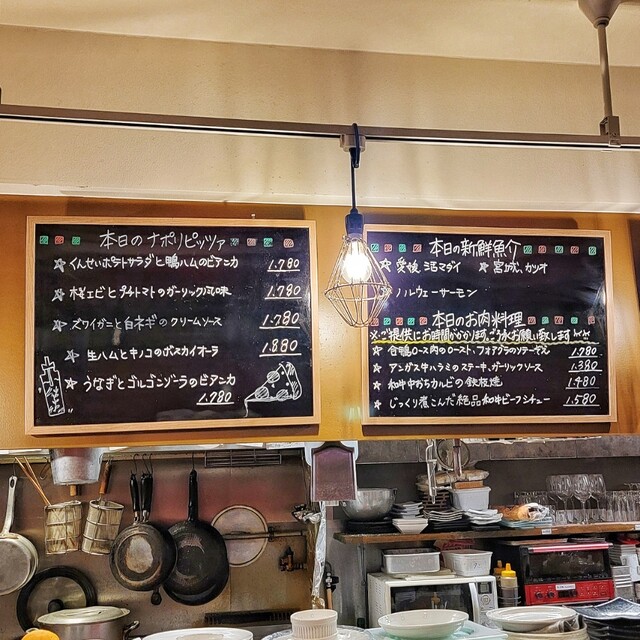 本日のナポリピッツァ
くんせいポテトサラダと鴨ハムのビアンカ 1.780
エビとプチトマトのガーリック風味 1.780
ズワイガニと白ネギのクリームソース 1.780
生ハムとキノコのボスカイオーラ 1.880
うなぎとゴルゴンゾーラのビアンカ
1.780
本日の新鮮魚介
愛媛 活マダイ 宮城 カツオ
ノルウェーサーモン
本日のお肉料理
※ご提供にお時間がかかります。ご了承お願い致しますm(__)m
合鴨ロース肉のロースト、フォアグラのソテーギス 1.780
アンガス牛ハラミのステーキ、ガーリックソース 1.380
和牛中おちカルビの鉄板焼 1.480
じっくり煮こんだ絶品和牛ビーフシチュー 1.580